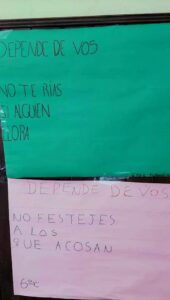 DEPENDE DE VOS
NO TE RIAS
SI ALGUIEN
LLORA
DEPENDE DE VOS
NO FESTEJES
A LOS
QUE ACOSAN